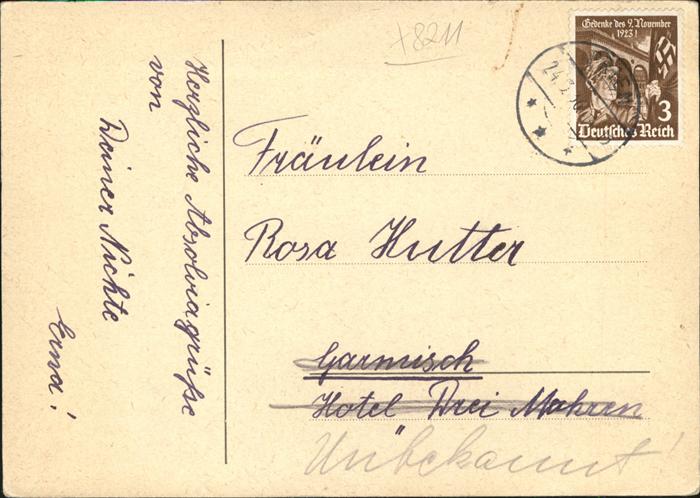 +8211
Gedenke des 9. November
1923!
3
Deutsches Reich
Herzliche Absolviagrüße
von
Deiner Nichte
Erna!
Fräulein
Rosa Hutter
Garmisch
Hotel Drei Mohren
Unbekannt!